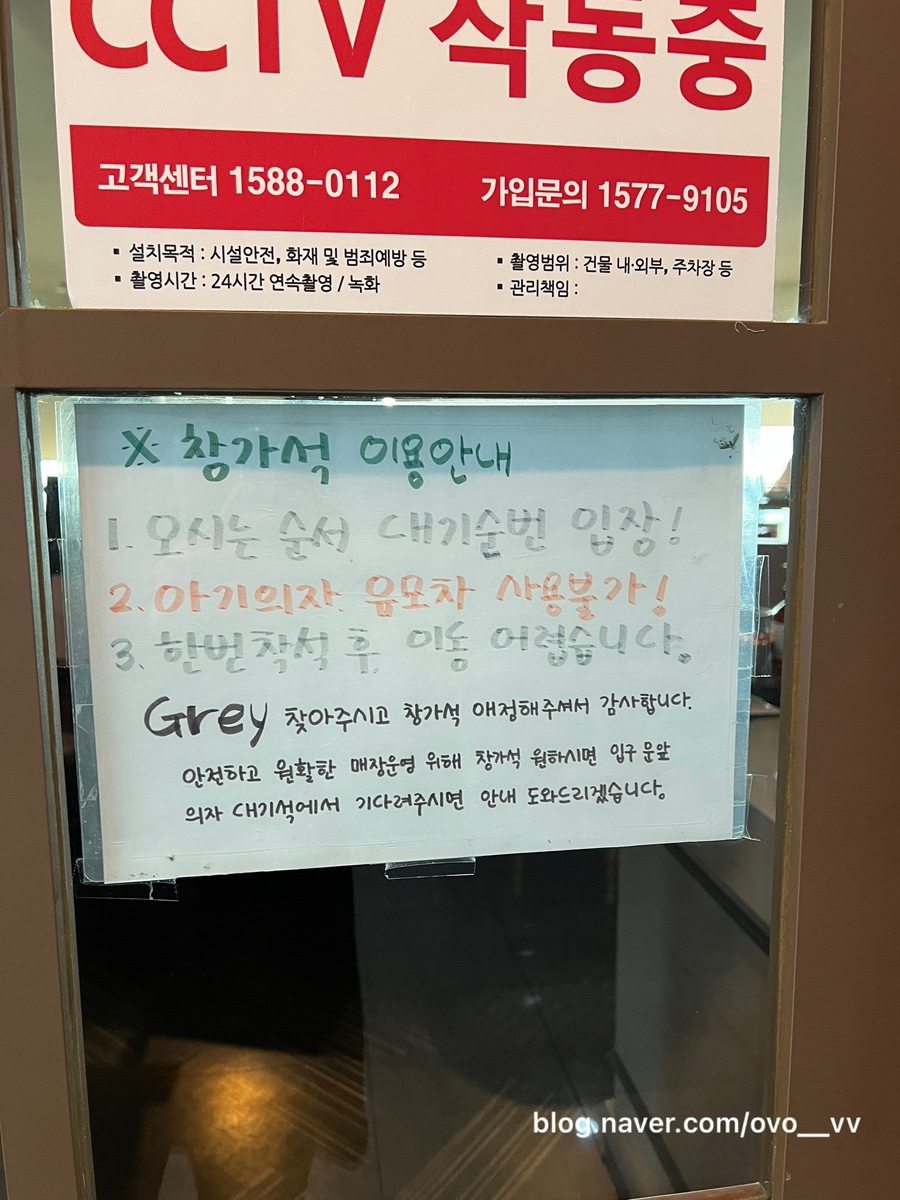 CCTV 작동중
고객센터 1588-0112 가입문의 1577-9105
▪ 설치목적 : 시설안전, 화재 및 범죄예방 등 ▪ 촬영범위 : 건물 내·외부, 주차장 등
▪ 촬영시간 : 24시간 연속촬영 / 녹화 ▪ 관리책임 :
※ 창가석 이용안내
1. 오시는 순서 대기순번 입장!
2. 아기의자. 유모차 사용불가!
3. 한번착석 후, 이동 어렵습니다.
Grey 찾아주시고 창가석 애정해주셔서 감사합니다.
안전하고 원활한 매장운영 위해 창가석 원하시면 입구 문앞
의자 대기석에서 기다려주시면 안내 도와드리겠습니다.
blog.naver.com/ovo__vv